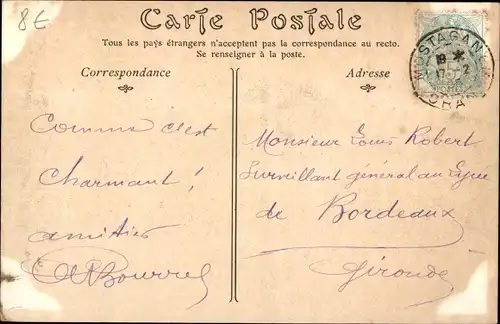 8€
Carte Postale
Tous les pays étrangers n'acceptent pas la correspondance au recto.
Se renseigner à la poste.
Correspondance
Adresse
MOSTAGAN
19 *
17 2
ORAN
Comme c'est
charmant !
amitiés
Bourrel
Monsieur Louis Robert
Surveillant général au Lycée
de Bordeaux
Gironde